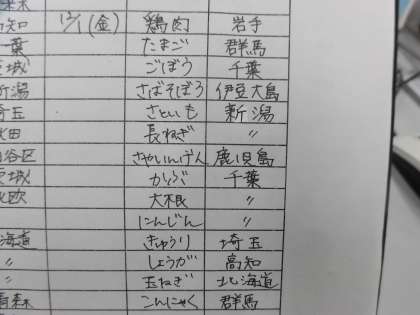 知 12/1(金) 鶏肉 岩手
葉 たまご 群馬
城 ごぼう 千葉
潟 さばそぼろ 伊豆大島
埼玉 さといも 新潟
秋田 長ねぎ 〃
谷区 さやいんげん 鹿児島
城 かぶ 千葉
北欧 大根 〃
にんじん 〃
海道 きゅうり 埼玉
〃 しょうが 高知
〃 玉ねぎ 北海道
青森 こんにゃく 群馬